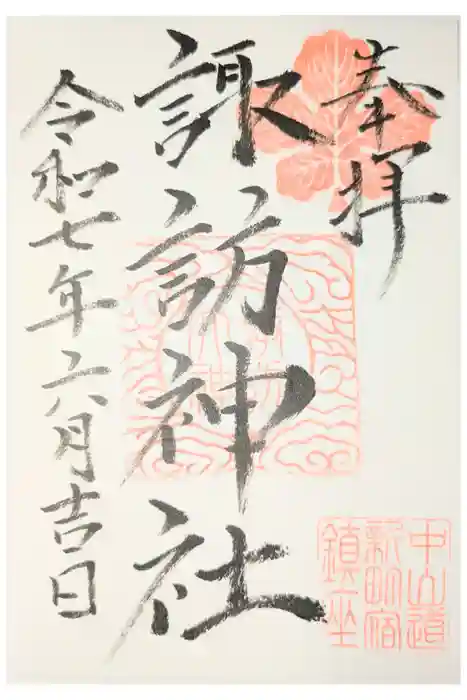 奉拝
諏訪神社
令和七年六月吉日
中山道
新町宿
鎮座